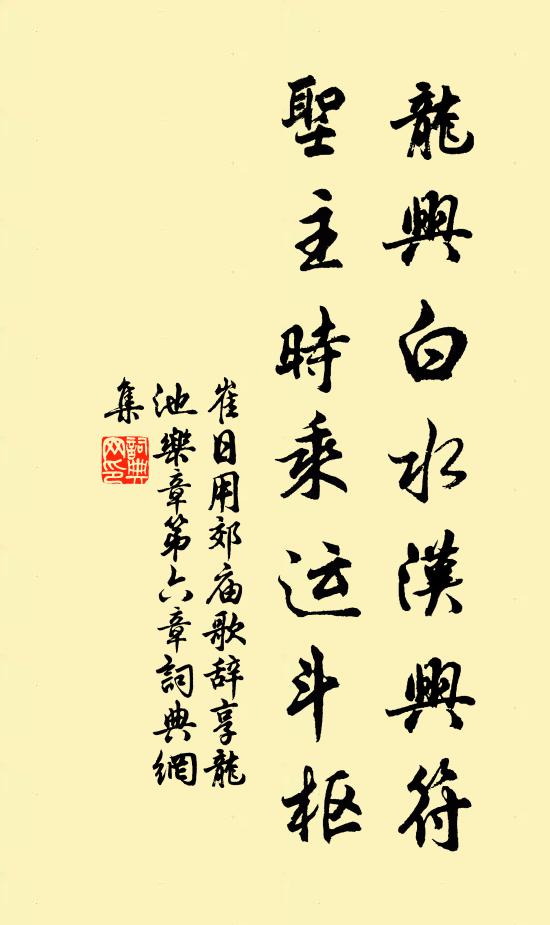 龍興白水漢興符
聖主時乘运斗枢
崔日用郊庙歌辞享龍
池樂章第六章詞典網
集
詞典
网印